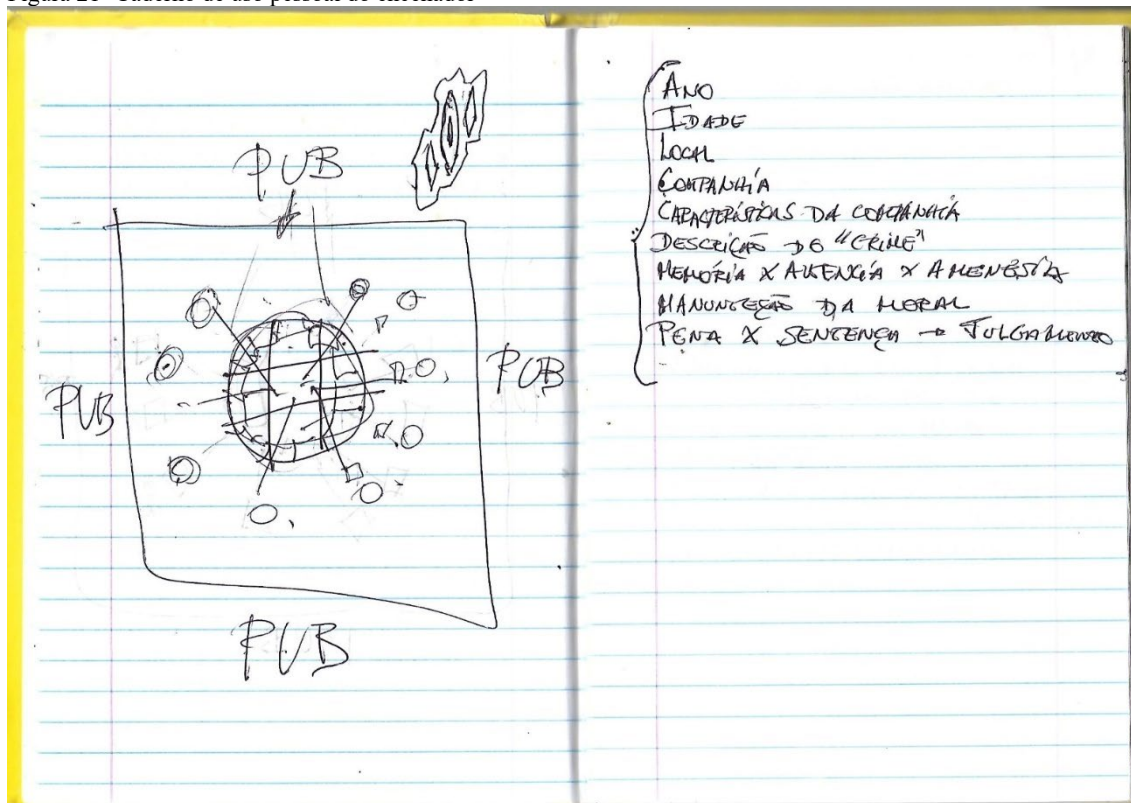 PUB
PUB
PUB
PUB
ANO
IDADE
LOCAL
COMPANHIA
CARACTERÍSTICAS DA COMPANHIA
DESCRIÇÃO DO "CRIME"
MEMÓRIA X X AMENÉSIA
DA MORAL
PENA X SENTENÇA → JULGAMENTO